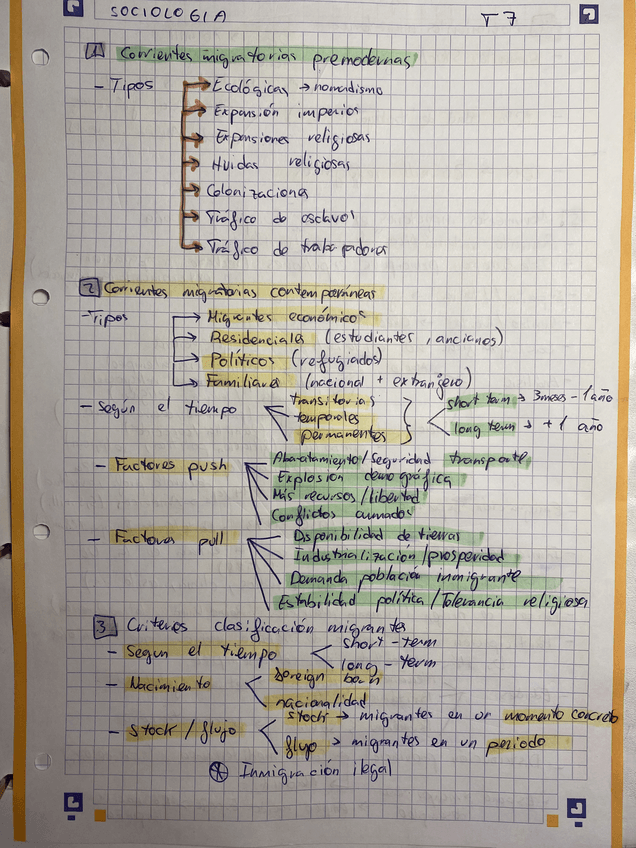 SOCIOLOGIA T7
1 Corrientes migratorias premodernas
- Tipos → Ecológicas → nomadismo
→ Expansión imperios
→ Expansiones religiosas
→ Huidas religiosas
→ Colonizaciones
→ Tráfico de esclavos
→ Tráfico de trabajadores
2 Corrientes migratorias contemporáneas
- Tipos → Migrantes económicos
→ Residenciales (estudiantes, ancianos)
→ Políticos (refugiados)
→ Familiares (nacional + extranjero)
- Según el tiempo transitorias short term → 3 meses - 1 año
temporales
permanentes long term → + 1 año
- Factores push Abaratamiento/Seguridad transporte
Explosión demográfica
Más recursos/libertad
Conflictos armados
- Factores pull Disponibilidad de tierras
Industrialización/prosperidad
Demanda población inmigrante
Estabilidad política/Tolerancia religiosa
3 Criterios clasificación migrantes
- Según el tiempo short-term
long-term
- Nacimiento foreign born
nacionalidad
- Stock/flujo stock → migrantes en un momento concreto
flujo → migrantes en un periodo
* Inmigración ilegal